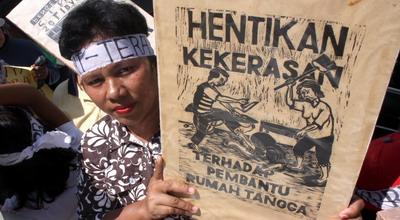 HENTIKAN
KEKERASAN
TERHADAP
PEMBANTU
RUMAH TANGGA